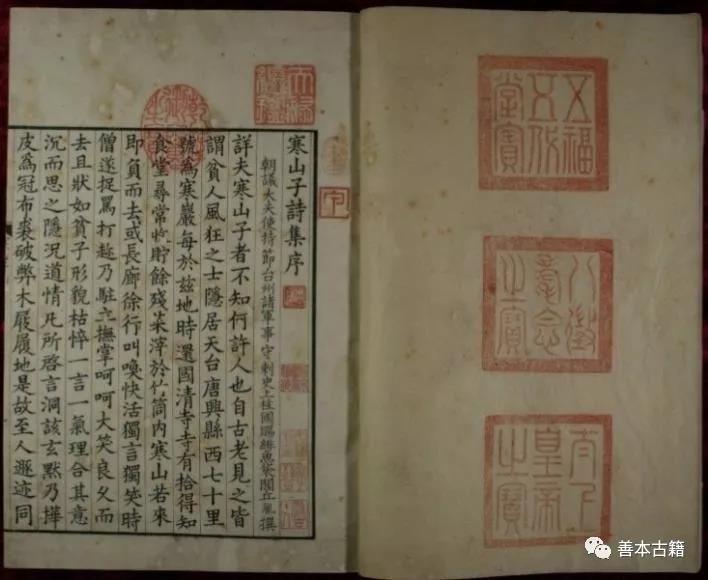 五福五代堂寶
八徵耄念之寶
太上皇帝之寶
天祿繼鑑
寒山子詩集序
朝議大夫使持節台州諸軍事守刺史上柱國賜緋魚袋閭丘胤撰
詳夫寒山子者不知何許人也自古老見之皆
謂貧人風狂之士隱居天台唐興縣西七十里
號為寒巖每於茲地時還國清寺寺有拾得知
食堂尋常收貯餘殘菜滓於竹筒內寒山若來
即負而去或長廊徐行叫喚快活獨言獨笑時
僧遂捉罵打趁乃駐立撫掌呵呵大笑良久而
去且狀如貧子形貌枯悴一言一氣理合其意
沉而思之隱況道情凡所啓言洞該玄默乃樺
皮為冠布裘破弊木屐履地是故至人遯迹同
善本古籍